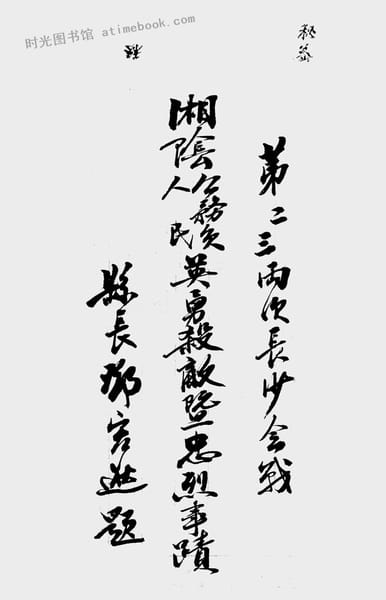 时光图书馆 atimebook.com
第二三兩次長沙会戰
湘陰公務員人民英勇殺敵暨忠烈事蹟
縣長鄧題